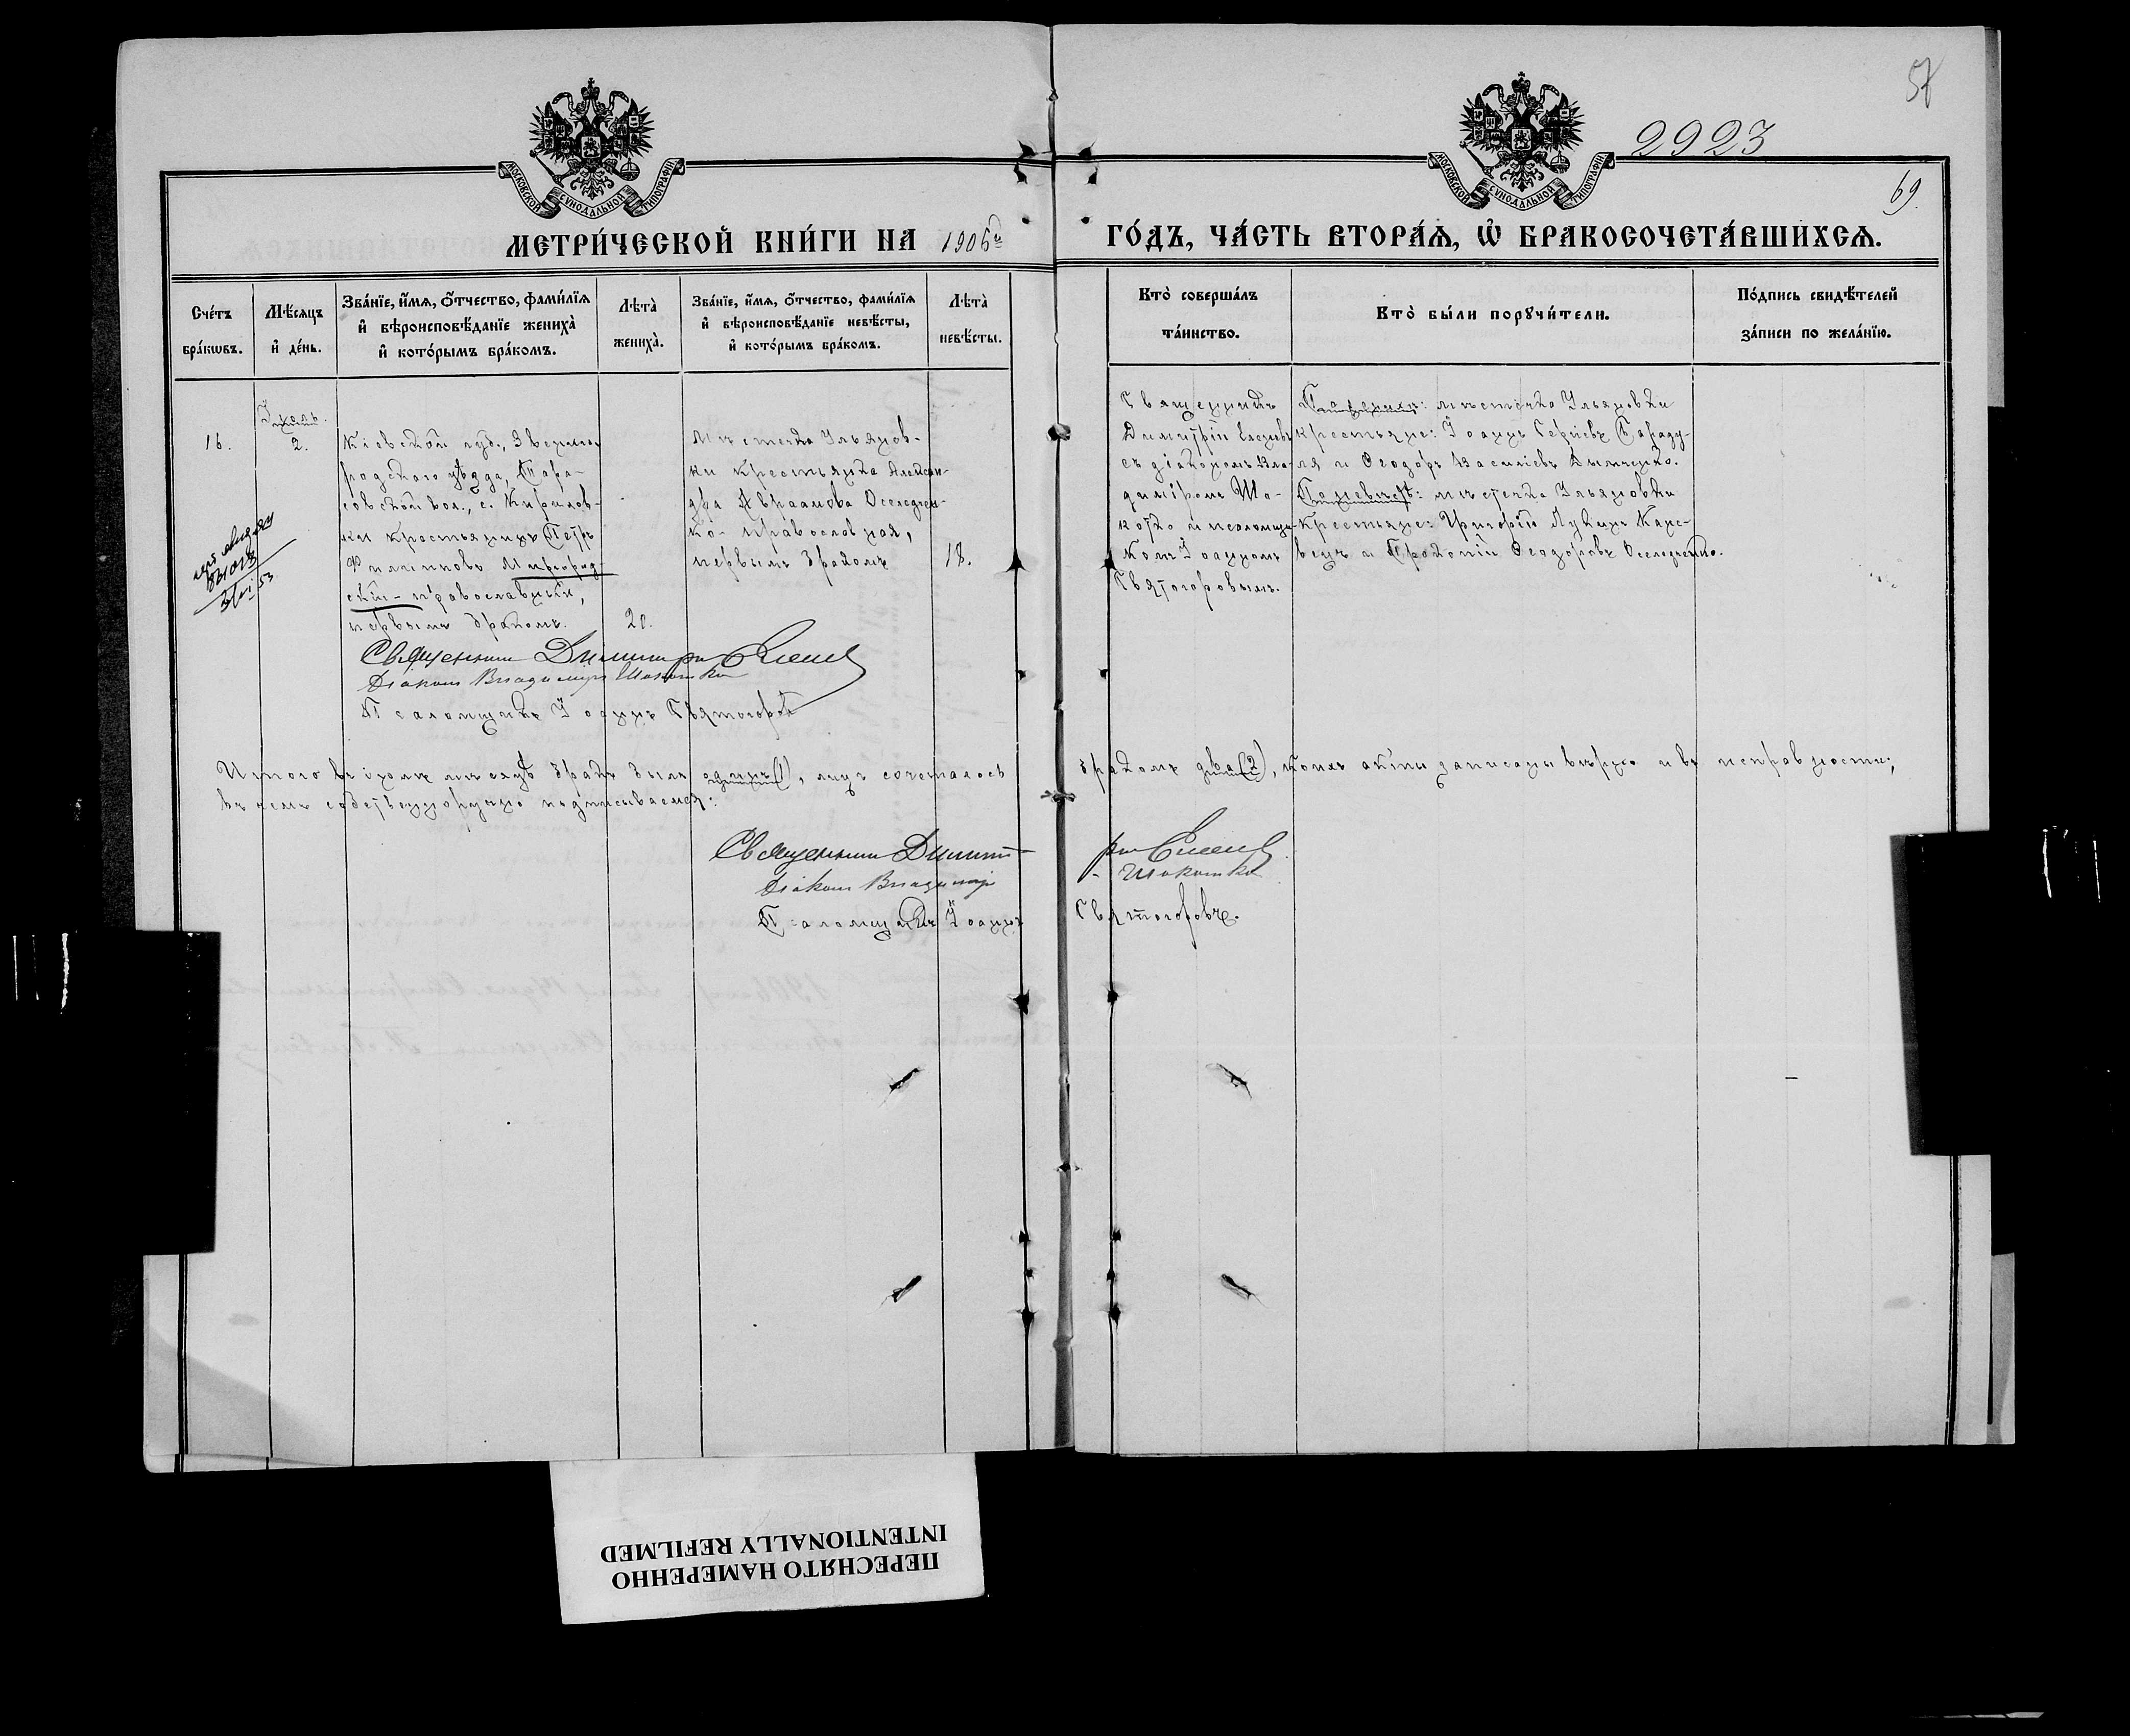 57
2923
69.
МОСКОВСКОЙ СѴНОДАЛЬНОЙ ТИПОГРАФІИ
МОСКОВСКОЙ СѴНОДАЛЬНОЙ ТИПОГРАФІИ
МЕТРИ́ЧЕСКОЙ КНИ́ГИ НА 1906й
ГО́ДЪ, ЧА́СТЬ ВТОРА́Ѧ, Ѡ҆ БРАКОСОЧЕТА́ВШИХСѦ.
Сче́тъ бра́кѡвъ.
Мѣ́сѧцъ и҆ де́нь.
Зва́нїе, и҆́мѧ, ѻ҆́тчество, фами́лїѧ
и҆ вѣроисповѣ́данїе жениха̀
и҆ кото́рымъ бра́комъ.
Лѣта̀ жениха̀.
Зва́нїе, и҆́мѧ, ѻ҆́тчество, фами́лїѧ
и҆ вѣроисповѣ́данїе невѣ́сты,
и҆ кото́рымъ бра́комъ.
Лѣта̀ невѣ́сты.
Кто̀ соверша́лъ та́инство.
Кто̀ бы́ли порꙋчи́тели.
По́дпись свидѣ́телей
за́писи по жела́нїю.
16.
Іюль.
2.
Кіевской губ., Звениго-
родского уѣзда, Тара-
совской вол., с. Кирилов-
ки крестьянинъ Петръ
Филиповъ Миргород-
скій - православный,
первымъ бракомъ.
20.
Мѣстечка Ульянов-
ки крестьянка Алексан-
дра Авраамова Оселедчен-
ко - православная,
первымъ бракомъ
18.
Священникъ
Димитрій
съ діакономъ Вла-
диміромъ Ша-
котко и псаломщи-
комъ Іоанномъ
Святогоровымъ.
По женихѣ: мѣстечка Ульяновки
крестьяне: Іоаннъ Сергіевъ
и Ѳеодоръ Василіевъ
По невѣстѣ: мѣстечка Ульяновки
крестьяне: Григорій Лукинъ
и Прокопій Ѳеодоровъ Оселедченко.
3/VI 53
Священникъ Димитрій
Діаконъ Владиміръ Шакотко
Псаломщикъ Іоаннъ Святогоровъ
Итого въ іюлѣ мѣсяцѣ бракъ былъ одинъ (1), лицъ сочеталось бракомъ два (2), коихъ акты записаны вѣрно и въ исправности;
въ чемъ собственноручно подписываемся:
Священникъ Димитрій
Діаконъ Владиміръ Шакотко
Псаломщикъ Іоаннъ Святогоровъ.
ПЕРЕСНЯТО НАМЕРЕННО
INTENTIONALLY REFILMED